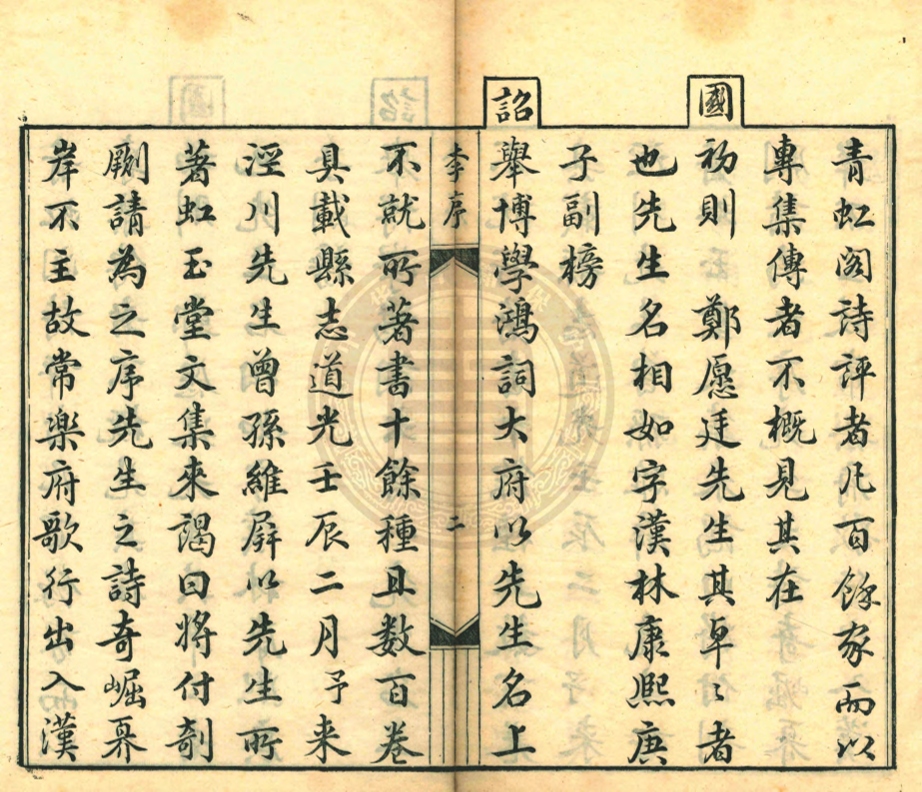 青虹阁詩評者凡百餘家而以
專集傳者不概見其在
國初則 鄭愿廷先生其卓〻者
也先生名相如字漢林康熙庚
子副榜
詔舉博學鴻詞大府以先生名上
李序 二
不就所著書十餘種且数百卷
具載縣志道光壬辰二月予来
涇川先生曾孫維屏以先生所
著虹玉堂文集來謁曰將付剞
劂請為之序先生之詩奇崛奡
岸不主故常樂府歌行出入漢